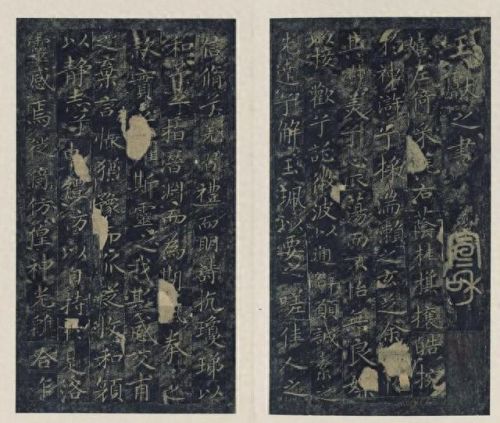 王獻之書
宣和
嬉左倚采右蔭桂旗攘皓捥
於神滸兮采湍瀨之玄芝余
其淑美兮心振蕩而不怡無良媒
以接歡兮託微波以通辭願誠素之
先達兮解玉珮以要之嗟佳人之
信脩兮羌習禮而明詩抗瓊珶以
和予兮指潛淵而為期
款實斯靈之我欺感交甫
之棄言悵猶豫而狐疑收和顏
以靜志兮申禮防以自持於是洛
靈感焉徙倚仿偟神光離合乍